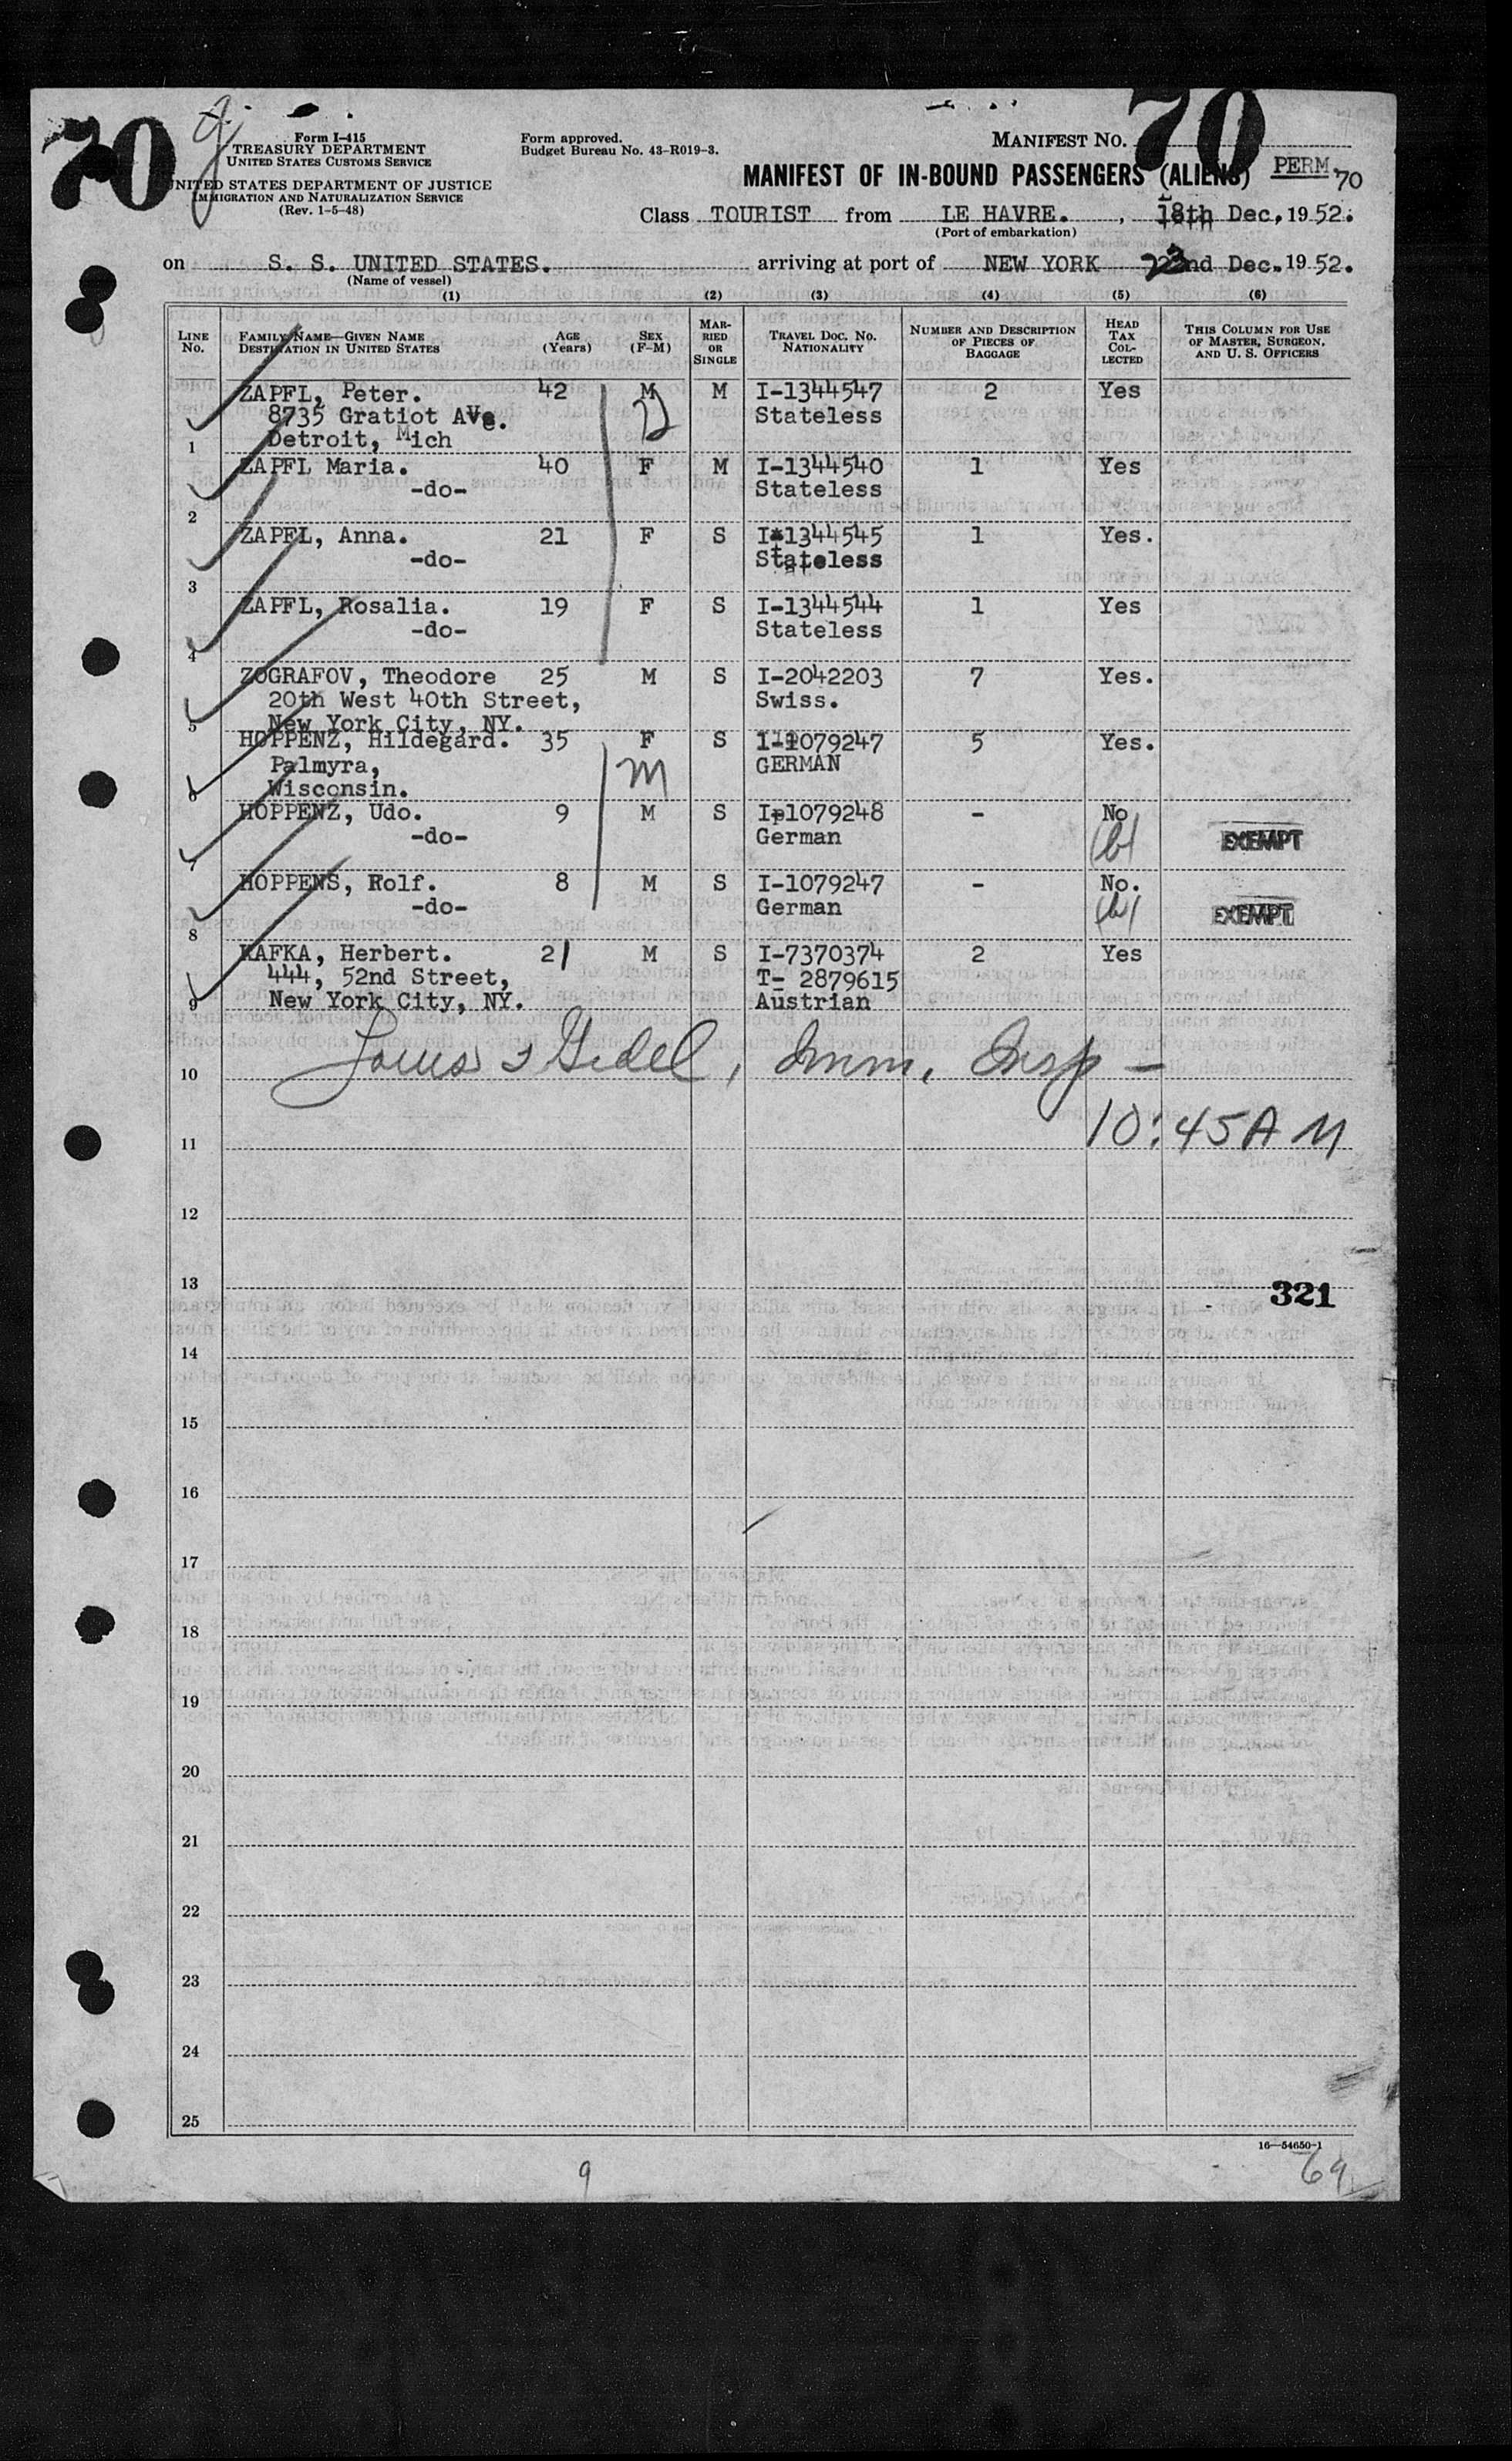 70
70
Form I-415
TREASURY DEPARTMENT
UNITED STATES CUSTOMS SERVICE
UNITED STATES DEPARTMENT OF JUSTICE
IMMIGRATION AND NATURALIZATION SERVICE
(Rev. 1-5-48)
Form approved.
Budget Bureau No. 43-R019-3.
MANIFEST NO.
MANIFEST OF IN-BOUND PASSENGERS (ALIENS) PERM 70
Class TOURIST from LE HAVRE. , 18th Dec, 19 52.
(Port of embarkation)
on S. S. UNITED STATES. arriving at port of NEW YORK Dec. 19 52.
(Name of vessel)
(1) (2) (3) (4) (5) (6)
LINE No. FAMILY NAME—GIVEN NAME DESTINATION IN UNITED STATES AGE (Years) SEX (F-M) MARRIED OR SINGLE TRAVEL DOC. NO. NATIONALITY NUMBER AND DESCRIPTION OF PIECES OF BAGGAGE HEAD TAX COLLECTED THIS COLUMN FOR USE OF MASTER, SURGEON, AND U. S. OFFICERS
ZAPFL, Peter. 42 M M I-1344547 2 Yes
8735 Gratiot AVe. Stateless
1 Detroit, Mich
ZAPFL Maria. 40 F M I-1344540 1 Yes
-do- Stateless
2
ZAPFL, Anna. 21 F S I-1344545 1 Yes.
-do- Stateless
3
ZAPFL, Rosalia. 19 F S I-1344544 1 Yes
-do- Stateless
4
ZOGRAFOV, Theodore 25 M S I-2042203 7 Yes.
20th West 40th Street, Swiss.
5 New York City, NY.
HOPPENZ, Hildegard. 35 F S I-1079247 5 Yes.
Palmyra, M GERMAN
6 Wisconsin.
HOPPENZ, Udo. 9 M S I-1079248 - No
-do- German (b) EXEMPT
7
HOPPENS, Rolf. 8 M S I-1079247 - No.
-do- German (b) EXEMPT
8
KAFKA, Herbert. 21 M S I-7370374 2 Yes
444, 52nd Street, T- 2879615
9 New York City, NY. Austrian
Imm. Insp -
10
10:45 AM
11
12
13
321
14
15
16
17
18
19
20
21
22
23
24
25
16—54650-1
9
69